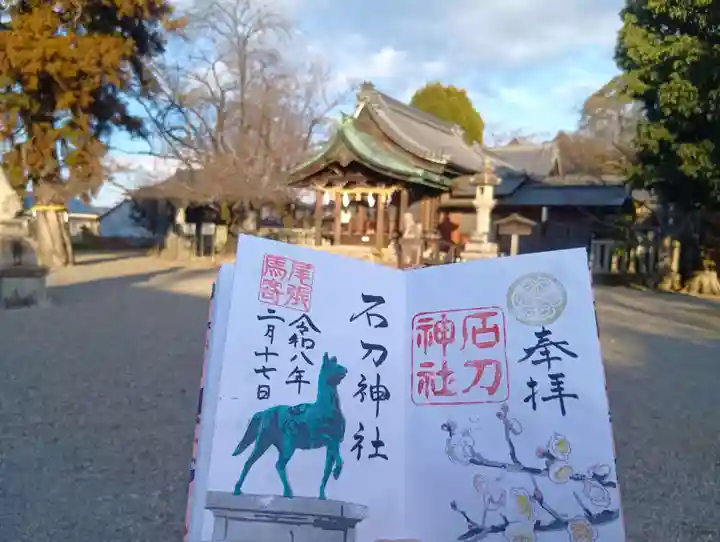 奉拝
石刀
神社
石刀神社
尾張
馬寄
令和八年
二月十七日